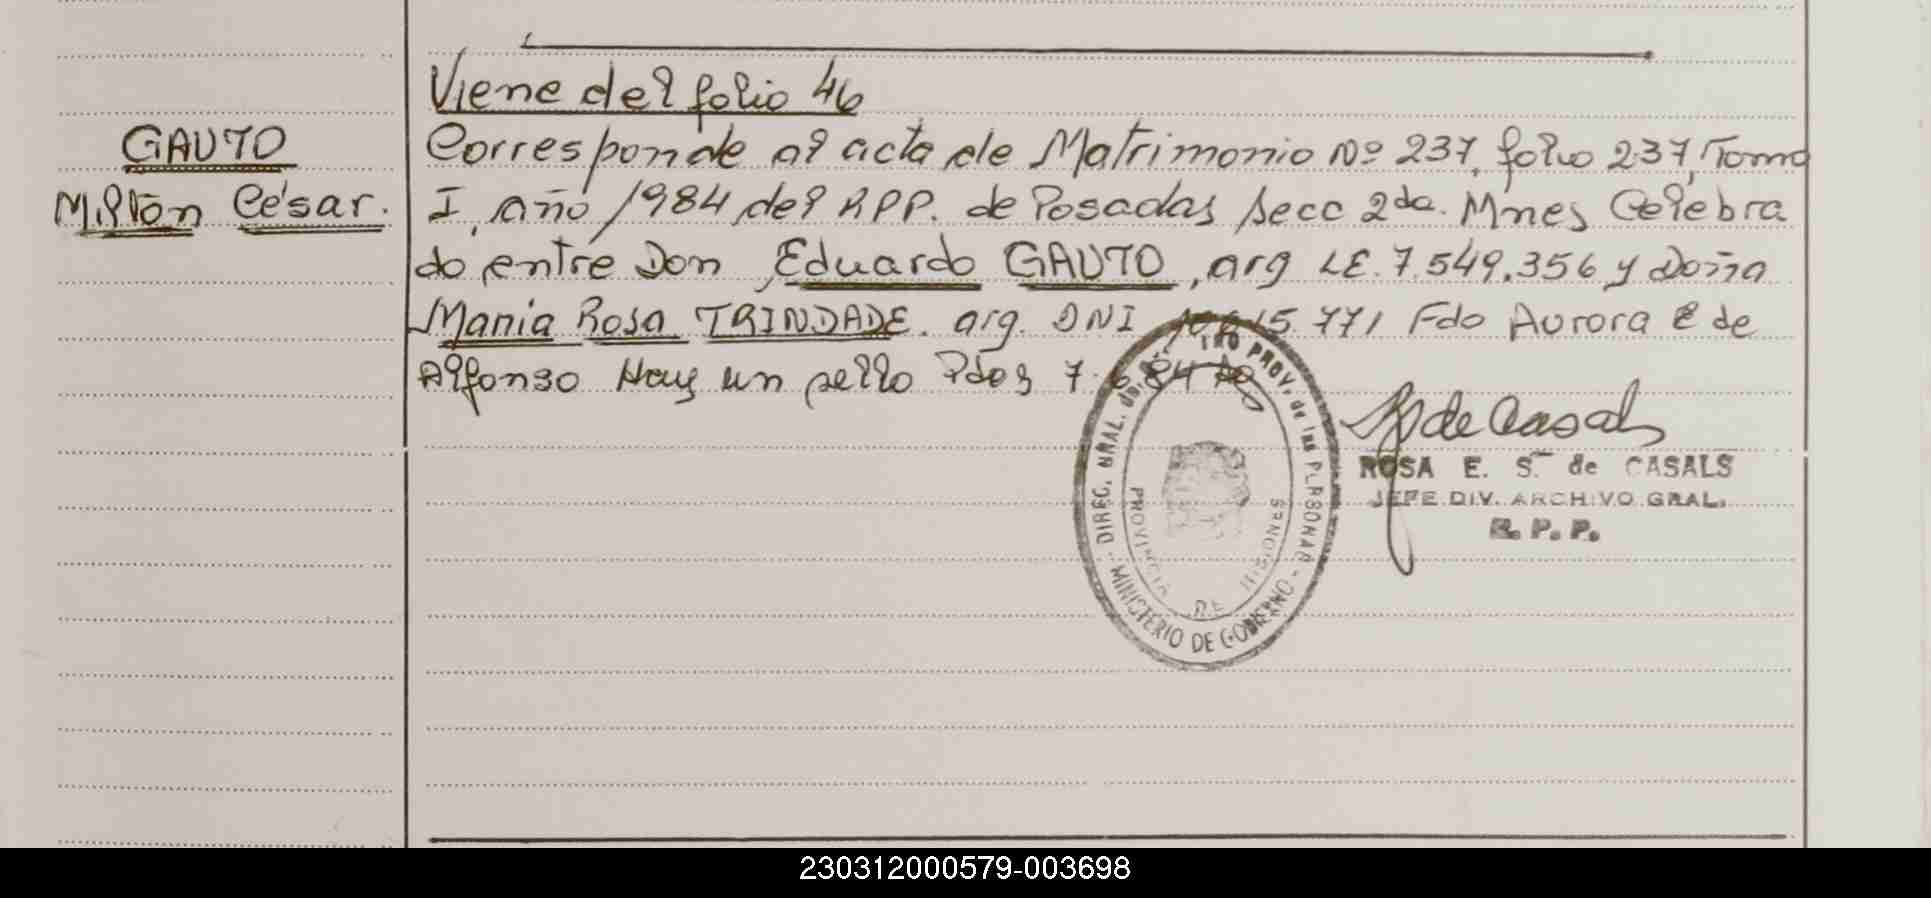 Viene del folio 46
GAUTO
Milton César.
Corresponde al acta de Matrimonio Nº 237, folio 237, Tomo
I, año 1984 del RPP. de Posadas Secc 2da. Mnes Celebra
do entre Don Eduardo GAUTO, arg LE. 7.549.356 y Doña
Maria Rosa TRINDADE. arg. DNI 771 Fdo Aurora E de
Alfonso Hay un sello Pdas 7.6.84
DIREC. GRAL. PROV. de las PERSONAS - MINISTERIO DE GOBIERNO
PROVINCIA DE MISIONES
R de Casals
ROSA E. S. de CASALS
JEFE DIV. ARCHIVO GRAL.
R. P. P.
230312000579-003698